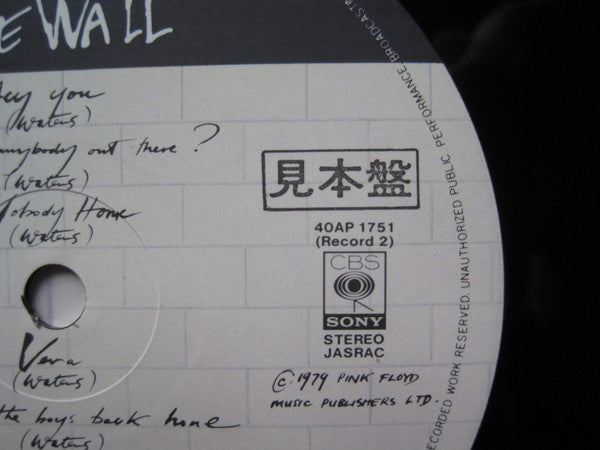 E WALL
Hey you
(Waters)
anybody out there?
(Waters)
Nobody Home
(Waters)
見本盤
40AP 1751
(Record 2)
CBS
SONY
STEREO
JASRAC
Vera
(Waters)
©.1979 PINK FLOYD
MUSIC PUBLISHERS LTD.
the boys back home
(Waters)
RECORDED WORK RESERVED. UNAUTHORIZED PUBLIC PERFORMANCE, BROADCASTIN